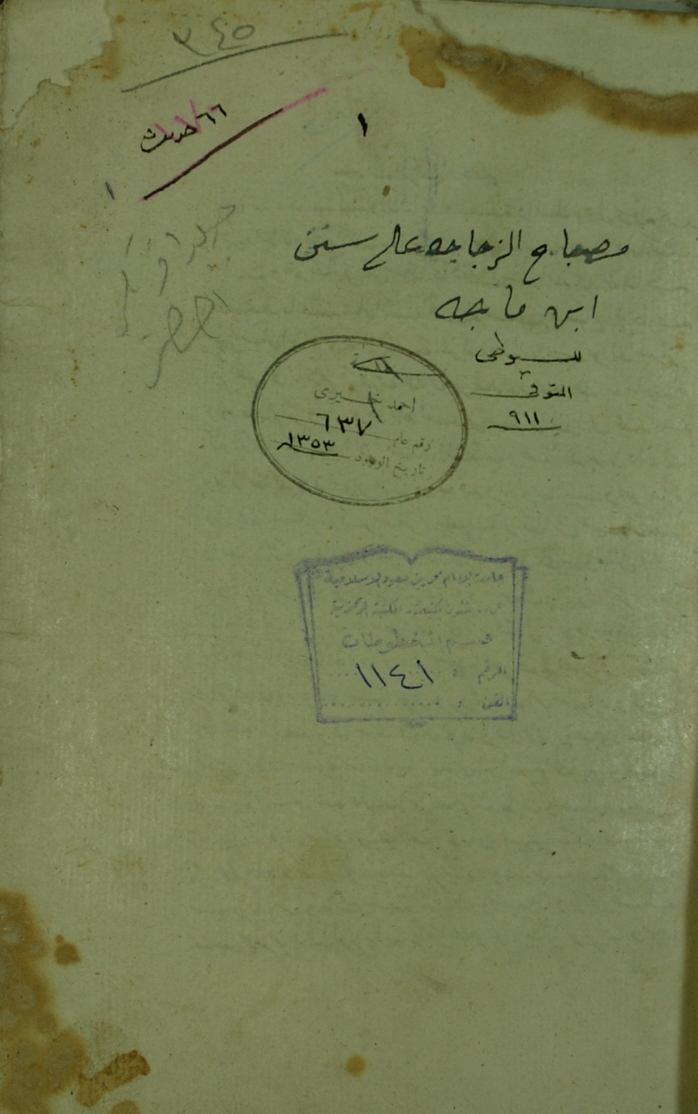 ٣٤٥
٦٦ حديث
١
١
مصباح الزجاجه على سنن
ابن ماجه
للسيوطي
المتوفى
٩١١
احمد خيرى
رقم عام ٦٣٧
تاريخ الورود ١٣٥٣
جامعة الإمام محمد بن سعود الإسلامية
المكتبة المركزية
قسم المخطوطات
الرقم : ١١٤١
الفن :